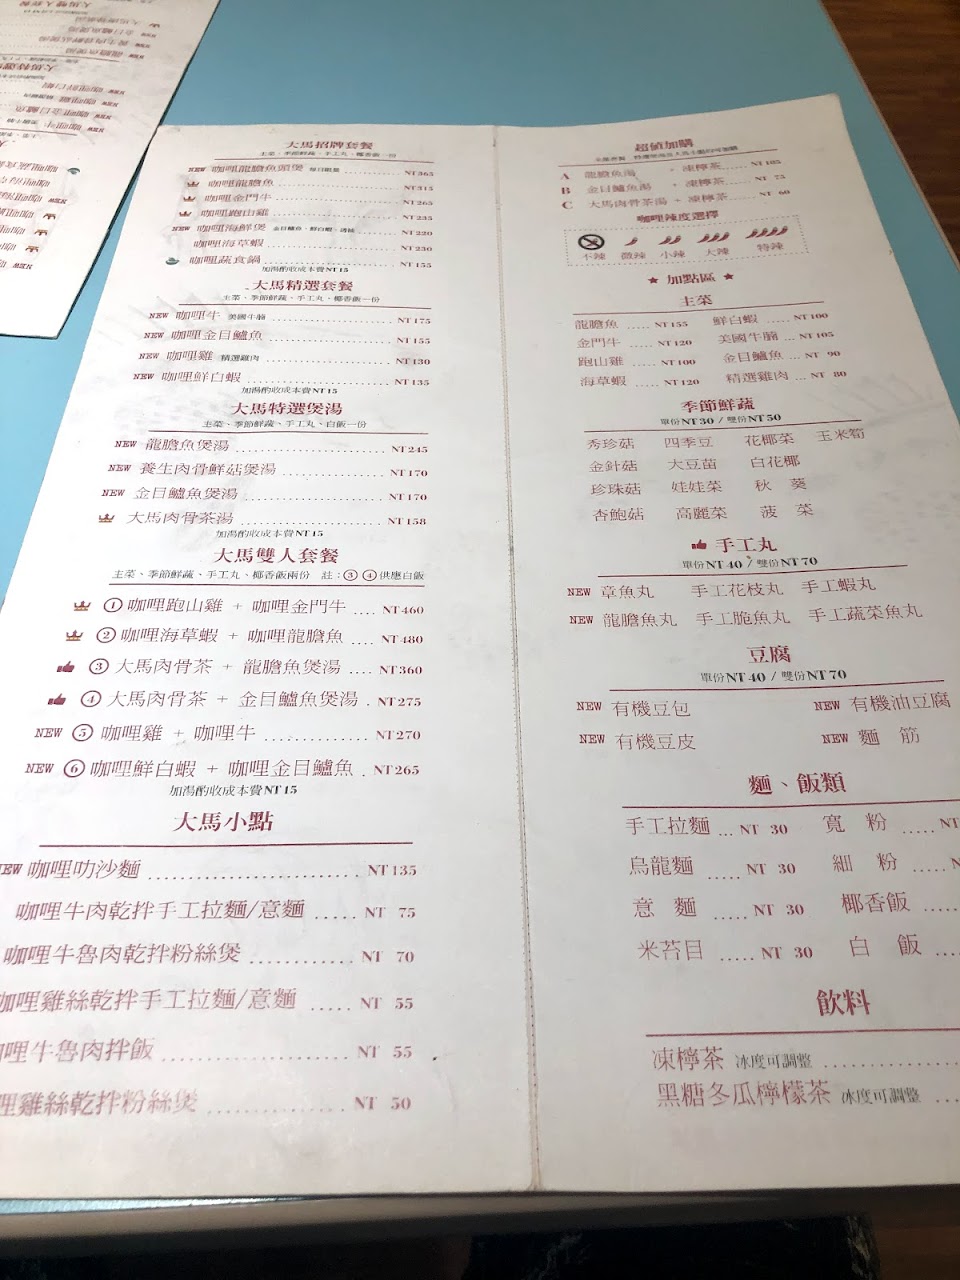 大馬招牌套餐
主菜、季節鮮蔬、手工丸、椰香飯一份
NEW 咖哩龍膽魚頭煲 每日限量 NT365
咖哩龍膽魚 NT315
咖哩金門牛 NT265
咖哩跑山雞 NT235
NEW 咖哩海鮮煲 金目鱸魚、鮮白蝦、透抽 NT220
咖哩海草蝦 NT230
咖哩蔬食鍋 NT155
加湯酌收成本費NT15
大馬精選套餐
主菜、季節鮮蔬、手工丸、椰香飯一份
NEW 咖哩牛 美國牛腩 NT175
NEW 咖哩金目鱸魚 NT155
NEW 咖哩雞 精選雞肉 NT130
NEW 咖哩鮮白蝦 NT135
加湯酌收成本費NT15
大馬特選煲湯
主菜、季節鮮蔬、手工丸、白飯一份
NEW 龍膽魚煲湯 NT245
NEW 養生肉骨鮮菇煲湯 NT170
NEW 金目鱸魚煲湯 NT170
大馬肉骨茶湯 NT158
加湯酌收成本費NT15
大馬雙人套餐
主菜、季節鮮蔬、手工丸、椰香飯兩份 註：③④供應白飯
① 咖哩跑山雞 + 咖哩金門牛 .... NT460
② 咖哩海草蝦 + 咖哩龍膽魚 .... NT480
③ 大馬肉骨茶 + 龍膽魚煲湯 .... NT360
④ 大馬肉骨茶 + 金目鱸魚煲湯 . NT275
NEW ⑤ 咖哩雞 + 咖哩牛 NT270
NEW ⑥ 咖哩鮮白蝦 + 咖哩金目鱸魚 . NT265
加湯酌收成本費NT15
大馬小點
NEW 咖哩叻沙麵 NT135
咖哩牛肉乾拌手工拉麵/意麵 ..... NT 75
咖哩牛魯肉乾拌粉絲煲 NT 70
咖哩雞絲乾拌手工拉麵/意麵 ..... NT 55
咖哩牛魯肉拌飯 NT 55
哩雞絲乾拌粉絲煲 NT 50
超值加購
A 龍膽魚湯 + 凍檸茶 NT105
B 金目鱸魚湯 + 凍檸茶 NT 75
C 大馬肉骨茶湯 + 凍檸茶 NT 60
咖哩辣度選擇
不辣 微辣 小辣 大辣 特辣
★ 加點區 ★
主菜
龍膽魚 ..... NT155 鮮白蝦 ..... NT100
金門牛 ..... NT120 美國牛腩 ... NT105
跑山雞 ..... NT100 金目鱸魚 ... NT 90
海草蝦 ..... NT120 精選雞肉 ... NT 80
季節鮮蔬
單份NT30 / 雙份NT50
秀珍菇 四季豆 花椰菜 玉米筍
金針菇 大豆苗 白花椰
珍珠菇 娃娃菜 秋葵
杏鮑菇 高麗菜 菠菜
手工丸
單份NT40 / 雙份NT70
NEW 章魚丸 手工花枝丸 手工蝦丸
NEW 龍膽魚丸 手工脆魚丸 手工蔬菜魚丸
豆腐
單份NT40 / 雙份NT70
NEW 有機豆包 NEW 有機油豆腐
NEW 有機豆皮 NEW 麵筋
麵、飯類
手工拉麵 ... NT 30 寬粉 ..... NT
烏龍麵 ..... NT 30 細粉 .....
意麵 ..... NT 30 椰香飯 ....
米苔目 ..... NT 30 白飯 .....
飲料
凍檸茶 冰度可調整
黑糖冬瓜檸檬茶 冰度可調整